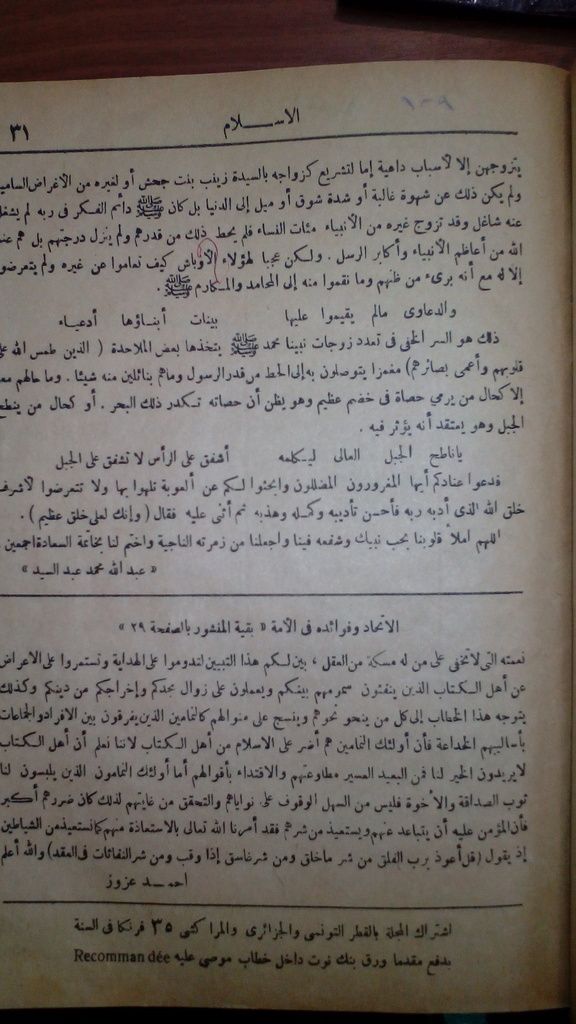 الاســـلام
٣١
يتزوجهن إلا لأسباب داهية إما لتشريع كزواجه بالسيدة زينب بنت جحش أو لغيره من الأغراض السامية
ولم يكن ذلك عن شهوة غالبة أو شدة شوق أو ميل إلى الدنيا بل كان ﷺ دائم الفكر فى ربه لم يشغله
عنه شاغل وقد تزوج غيره من الأنبياء مئات النساء فلم يحط ذلك من قدرهم ولم ينزل درجتهم بل هم عند
الله من أعاظم الأنبياء وأكابر الرسل . ولكن عجبا لهؤلاء الأوباش كيف تعاموا عن غيره ولم يتعرضوا
إلا له مع أنه برىء من ظنهم وما نقموا منه إلى المحامد والمكارم ﷺ .
والدعاوى مالم يقيموا عليها بينات أبناؤها أدعياء
ذلك هو السر الخفى فى تعدد زوجات نبينا محمد ﷺ يتخذها بعض الملاحدة ( الذين طمس الله على
قلوبهم وأعمى بصائرهم) مغمزا يتوصلون به إلى الحط من قدر الرسول وماهم بنائلين منه شيئا . وما حالهم معه
إلا كحال من يرمي حصاة فى خضم عظيم وهو يظن أن حصاته تكدر ذلك البحر . أو كحال من ينطح
الجبل وهو يعتقد أنه يؤثر فيه .
ياناطح الجبل العالى ليكلمه أشفق على الرأس لا تشفق على الجبل
فدعوا عنادكم أيها المغرورون المضللون وابحثوا لكم عن ألعوبة تلهوا بها ولا تتعرضوا لأشرف
خلق الله الذى أدبه ربه فأحسن تأديبه وكمله وهذبه ثم أثنى عليه فقال ( وإنك لعلى خلق عظيم ) .
اللهم املأ قلوبنا بحب نبيك وشفعه فينا واجعلنا من زمرته الناجية واختم لنا بخاتمة السعادة اجمعين .
« عبد الله محمد عبد السيد »
الاتحاد وفوائده فى الأمة « بقية المنشور بالصفحة ٢٩ »
نعمته التى لاتخفى على من له مسكة من العقل ، بين لكم هذا التبيين لتدوموا على الهداية وتستمروا على الاعراض
عن أهل الكتاب الذين ينفثون سمومهم بينكم ويعملون على زوال مجدكم وإخراجكم من دينكم وكذلك
يتوجه هذا الخطاب إلى كل من ينحو نحوهم وينسج على منوالهم كالنمامين الذين يفرقون بين الافراد والجماعات
بأساليبهم الخداعة فأن أولئك النمامين هم أضر على الاسلام من أهل الكتاب لاننا نعلم أن أهل الكتاب
لايريدون الخير لنا فمن البعيد العسير مطاوعتهم والاقتداء بأقوالهم أما أولئك النمامون الذين يلبسون لنا
ثوب الصداقة والأخوة فليس من السهل الوقوف على نواياهم والتحقق من غايتهم لذلك كان ضررهم أكبر
فأن المؤمن عليه أن يتباعد عنهم ويستعيذ من شرهم فقد أمرنا الله تعالى بالاستعاذة منهم كما نستعيذ من الشياطين
إذ يقول (قل أعوذ برب الفلق من شر ماخلق ومن شر غاسق إذا وقب ومن شر النفاثات فى العقد) والله أعلم
احمــد عزوز
اشتراك المجلة بالقطر التونسى والجزائرى والمراكشى ٣٥ فرنكا فى السنة
بدفع مقدما ورق بنك نوت داخل خطاب موصى عليه Recommandée